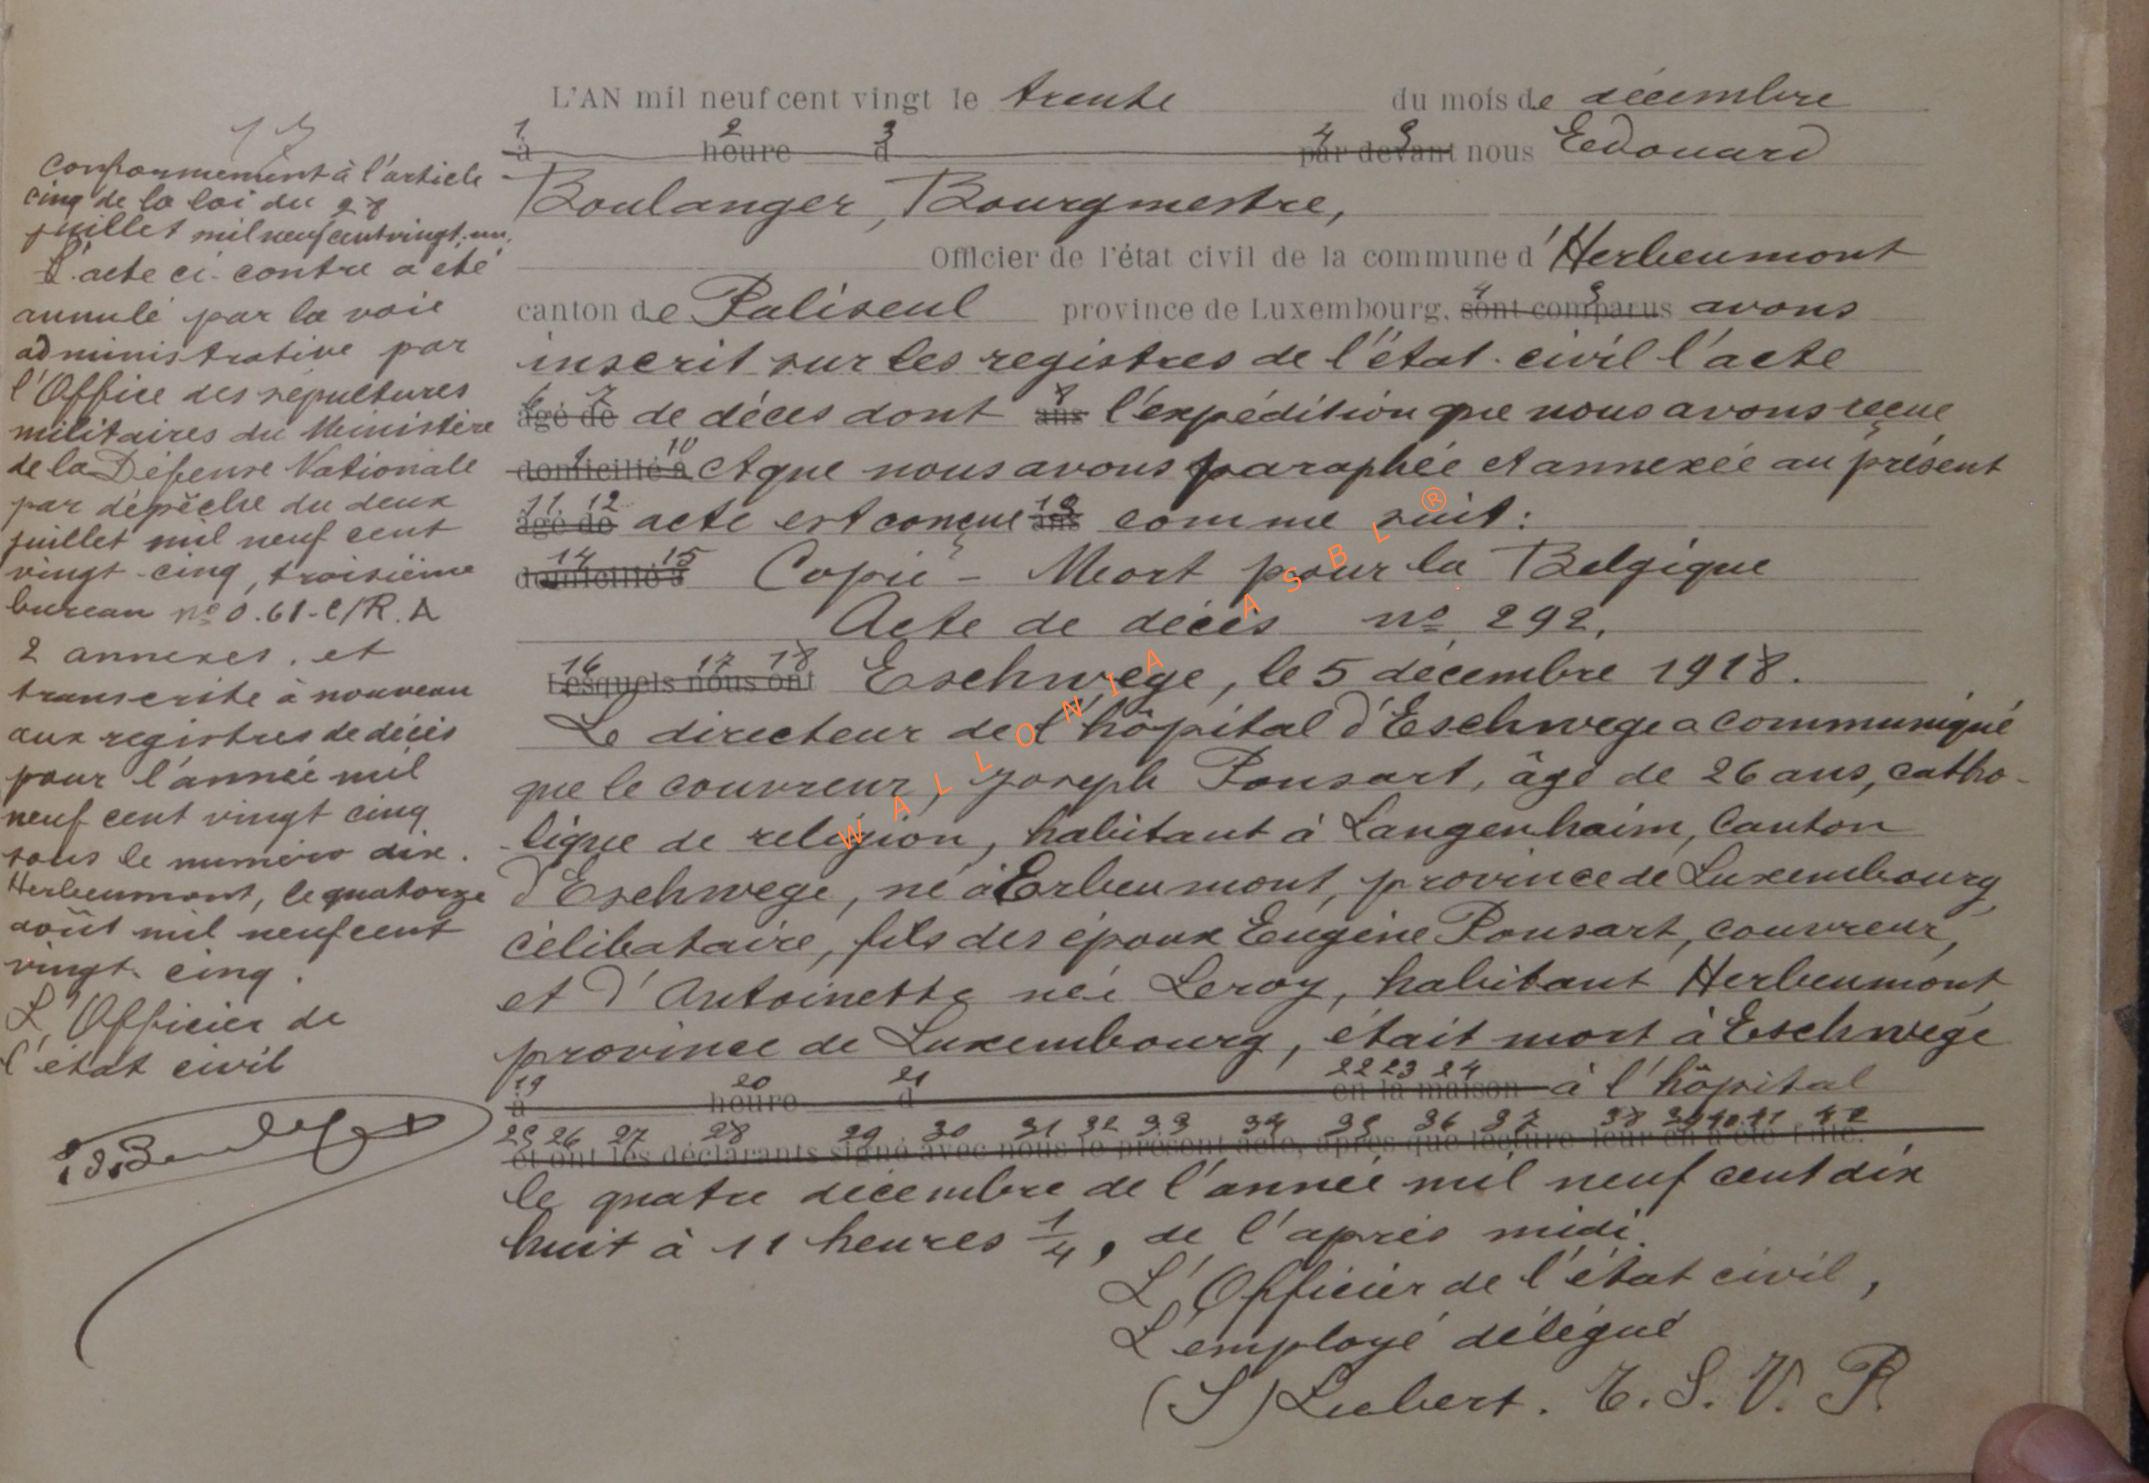 L'AN mil neuf cent vingt le trente du mois de décembre
1 2 3 4 5
à heure d par devant nous Edouard
Boulanger, Bourgmestre,
Officier de l'état civil de la commune d'Herbeumont
canton de Paliseul province de Luxembourg, sont comparus avons
inscrit sur les registres de l'état-civil l'acte
âgé de de décès dont ans l'expédition que nous avons reçue
domicilié à et que nous avons paraphée et annexée au présent
âgé de acte est conçue ans comme suit :
domicilié à Copie - Mort pour la Belgique
Acte de décès no 292.
16 17 18
Lesquels nous ont Eschwege, le 5 décembre 1918.
Le directeur de l'hôpital d'Eschwege a communiqué
que le couvreur, Joseph Ponsart, âgé de 26 ans, catho-
lique de religion, habitant à Langenhaim, Canton
d'Eschwege, né à Erbeumont, province de Luxembourg,
célibataire, fils des époux Eugène Ponsart, couvreur,
et d'Antoinette née Leroy, habitant Herbeumont,
province de Luxembourg, était mort à Eschwege
19 20 21 22 23 24
à heure d en la maison à l'hôpital
25 26 27 28 29 30 31 32 33 34 35 36 37 38 39 40 41 42
et ont les déclarants signé avec nous le présent acte, après que lecture leur en a été faite.
le quatre décembre de l'année mil neuf cent dix
huit à 11 heures 1/4, de l'après midi.
L'Officier de l'état civil,
L'employé délégué
(S) Liebert. T. S. V. P.
13
Conformément à l'article
cinq de la loi du 28
juillet mil neuf cent vingt-un,
L'acte ci-contre a été
annulé par la voie
administrative par
l'Office des sépultures
militaires du Ministère
de la Défense Nationale
par dépêche du deux
juillet mil neuf cent
vingt-cinq, troisième
bureau no 0.61-C/R.A
2 annexes. et
transcrite à nouveau
aux registres de décès
pour l'année mil
neuf cent vingt cinq
sous le numéro dix.
Herbeumont, le quatorze
août mil neuf cent
vingt-cinq.
L'Officier de
l'état civil
WALLONIA ASBL ®